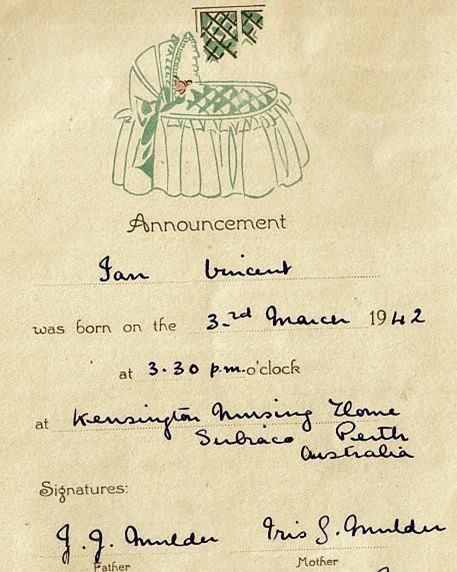 Announcement
Ian Vincent
was born on the 3rd March 1942
at 3.30 p.m. o'clock
at Kensington Nursing Home
Subiaco Perth
Australia
Signatures:
J. J. Mulder Iris S. Mulder
Father Mother